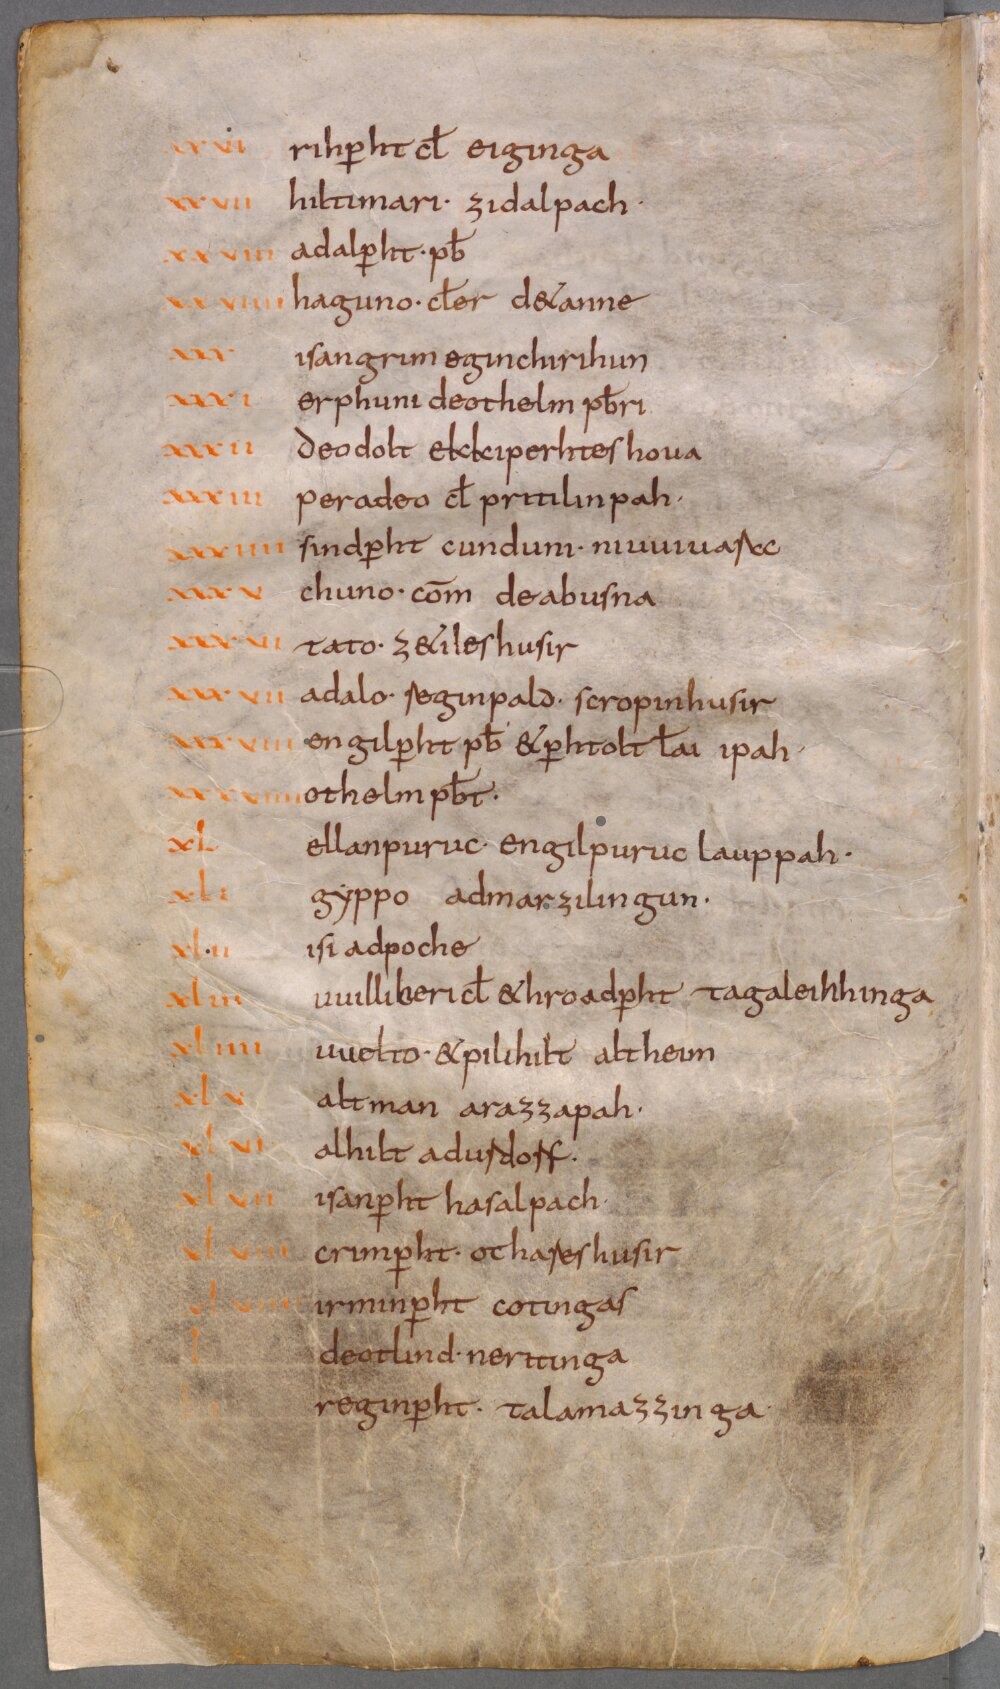 xxvi rihp̲ht cł eiginga
xxvii hiltimari· zidalpach·
xxviii adalp̲ht· pb̄
xxviiii haguno· cłer de&anne
xxx isangrim eginchirihun
xxxi erphuni deothelm pb̄ri
xxxii deodolt ekkiperhteshoua
xxxiii peradeo cł pritilinpah·
xxxiiii sindp̲ht cundum· niuuiuarec
xxxv chuno· com̄ deabusna
xxxvi tato· z&ileshusir
xxxvii adalo· reginpald· scropinhusir
xxxviii engilp̲ht pb̄ &p̲htolt łai ipah·
xxxviiii othelm pb̄t·
xl ellanpuruc· engilpuruc lauppah·
xli gyppo admarzilingun·
xlii isi adpoche
xliii uuillikeri cł &hroadp̲ht tagaleihhinga
xliiii uuelto· &pilihilt altheim
xlv altman arazzapah·
xlvi alhilt adurdorf·
xlvii isanp̲ht hasalpach·
xlviii crimp̲ht· othareshusir
xlviiii irminp̲ht cotingas
l deotlind· nertinga
reginp̲ht· talamazzinga